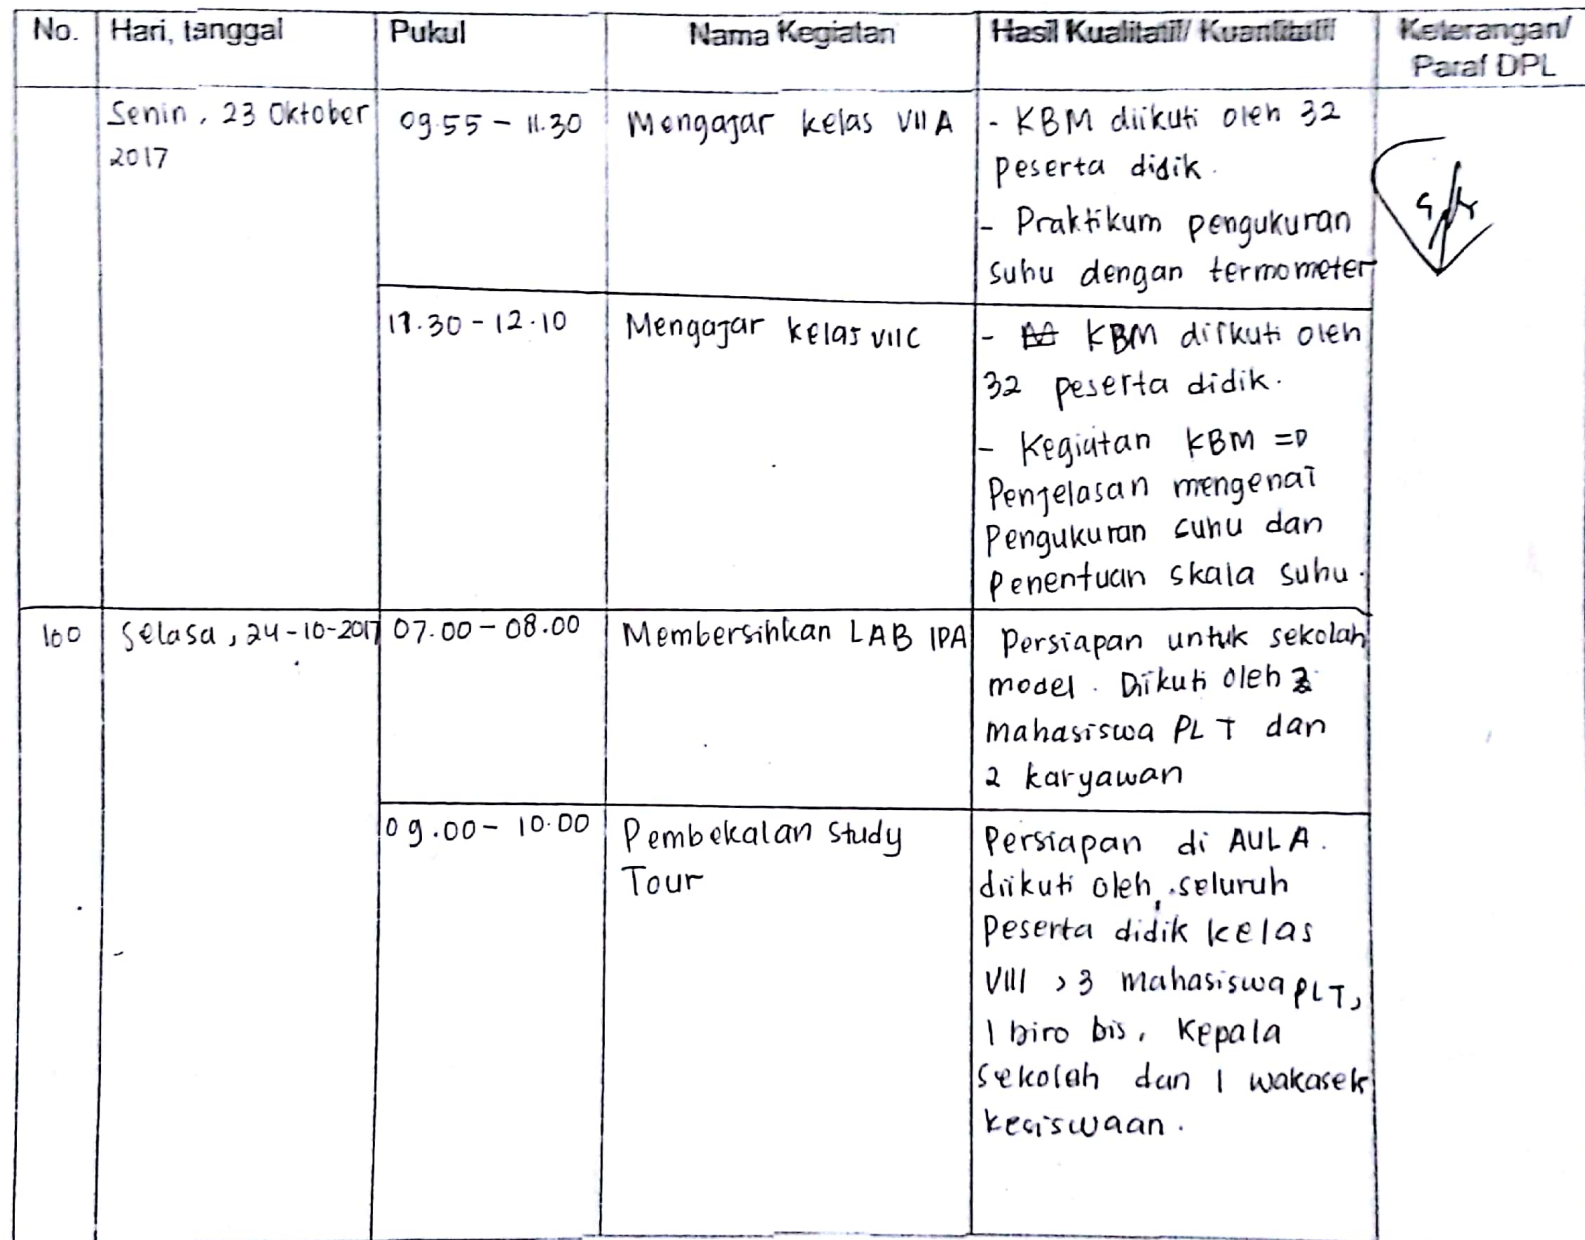 No. Hari, tanggal Pukul Nama Kegiatan Hasil Kualitatif/ Kuantitatif Keterangan/
Paraf DPL
Senin, 23 Oktober
2017
09.55 - 11.30
Mengajar kelas VII A
- KBM diikuti oleh 32
peserta didik.
- Praktikum pengukuran
suhu dengan termometer
11.30 - 12.10
Mengajar kelas VII C
- KBM diikuti oleh
32 peserta didik.
- Kegiatan KBM =D
Penjelasan mengenai
Pengukuran suhu dan
Penentuan skala suhu.
100
Selasa, 24-10-2017
07.00 - 08.00
Membersihkan LAB IPA
Persiapan untuk sekolah
model. Diikuti oleh
mahasiswa PLT dan
2 karyawan
09.00 - 10.00
Pembekalan Study
Tour
Persiapan di AULA.
diikuti oleh, seluruh
Peserta didik kelas
VIII, 3 mahasiswa PLT,
1 biro bis, Kepala
Sekolah dan 1 wakasek
kesiswaan.